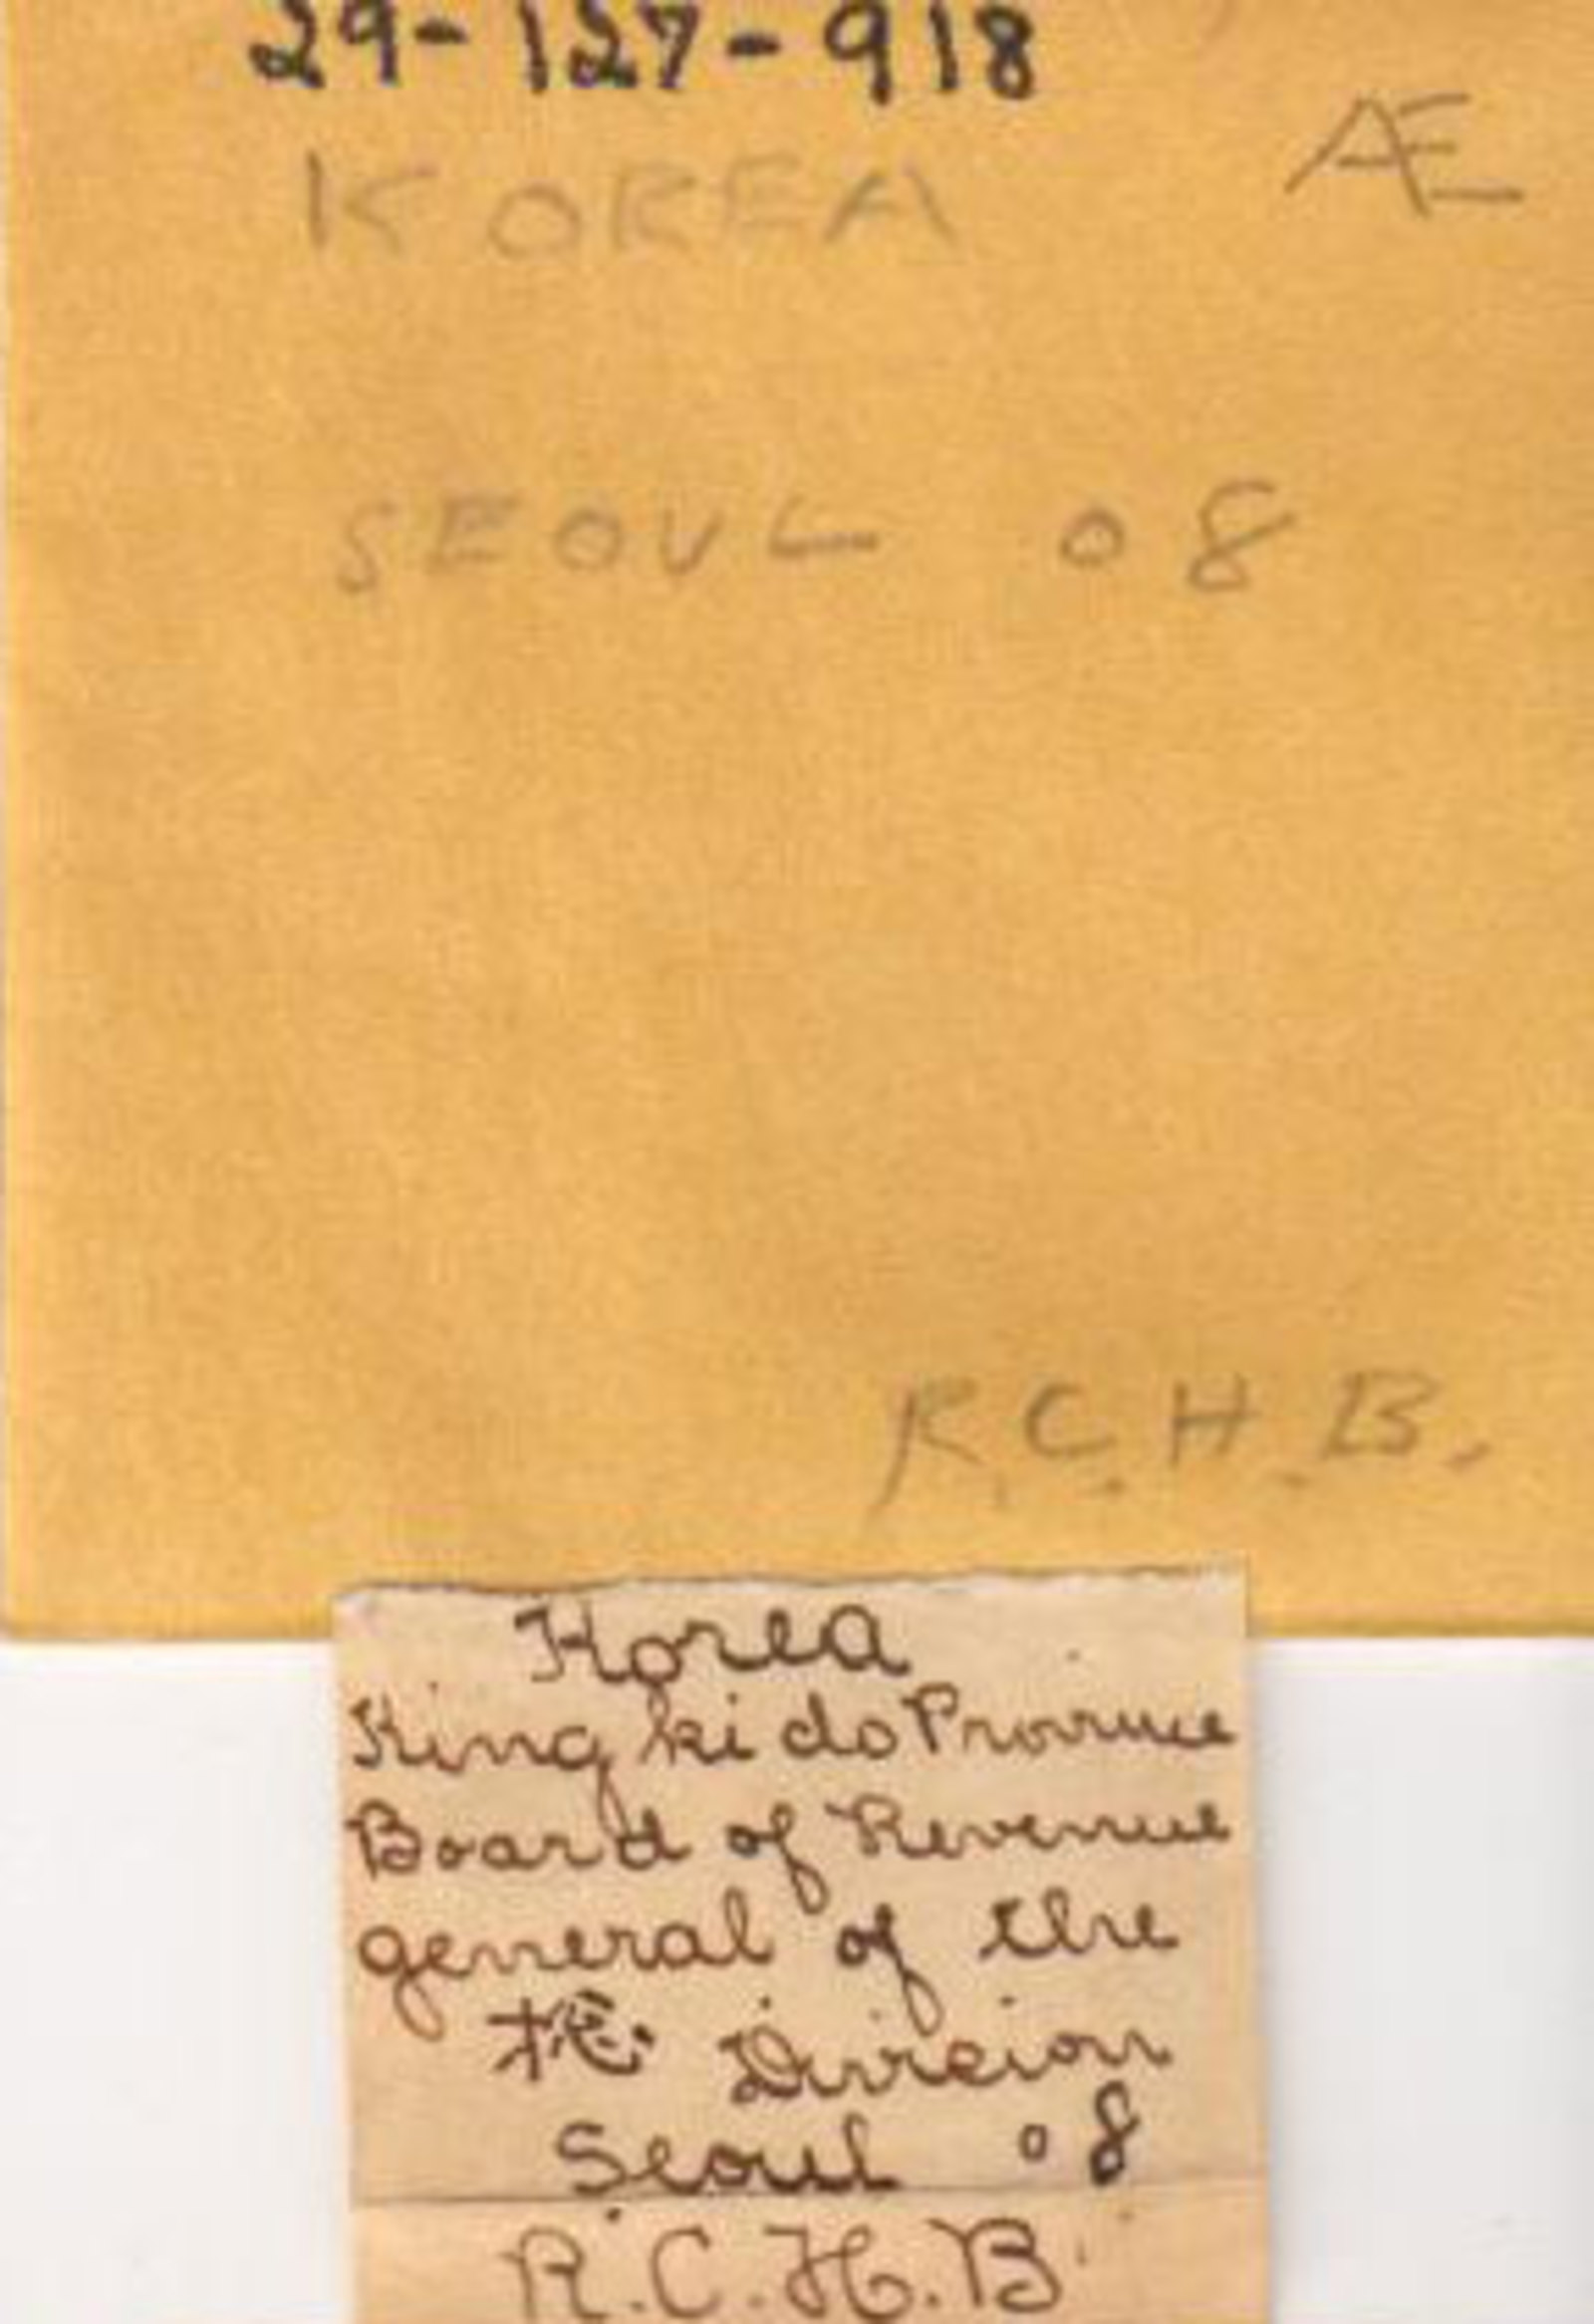 29-127-918
KOREA Æ
SEOUL 08
R.C.H.B.
Korea
King ki do Province
Board of Revenue
general of the
Division
Seoul 08
R.C.H.B